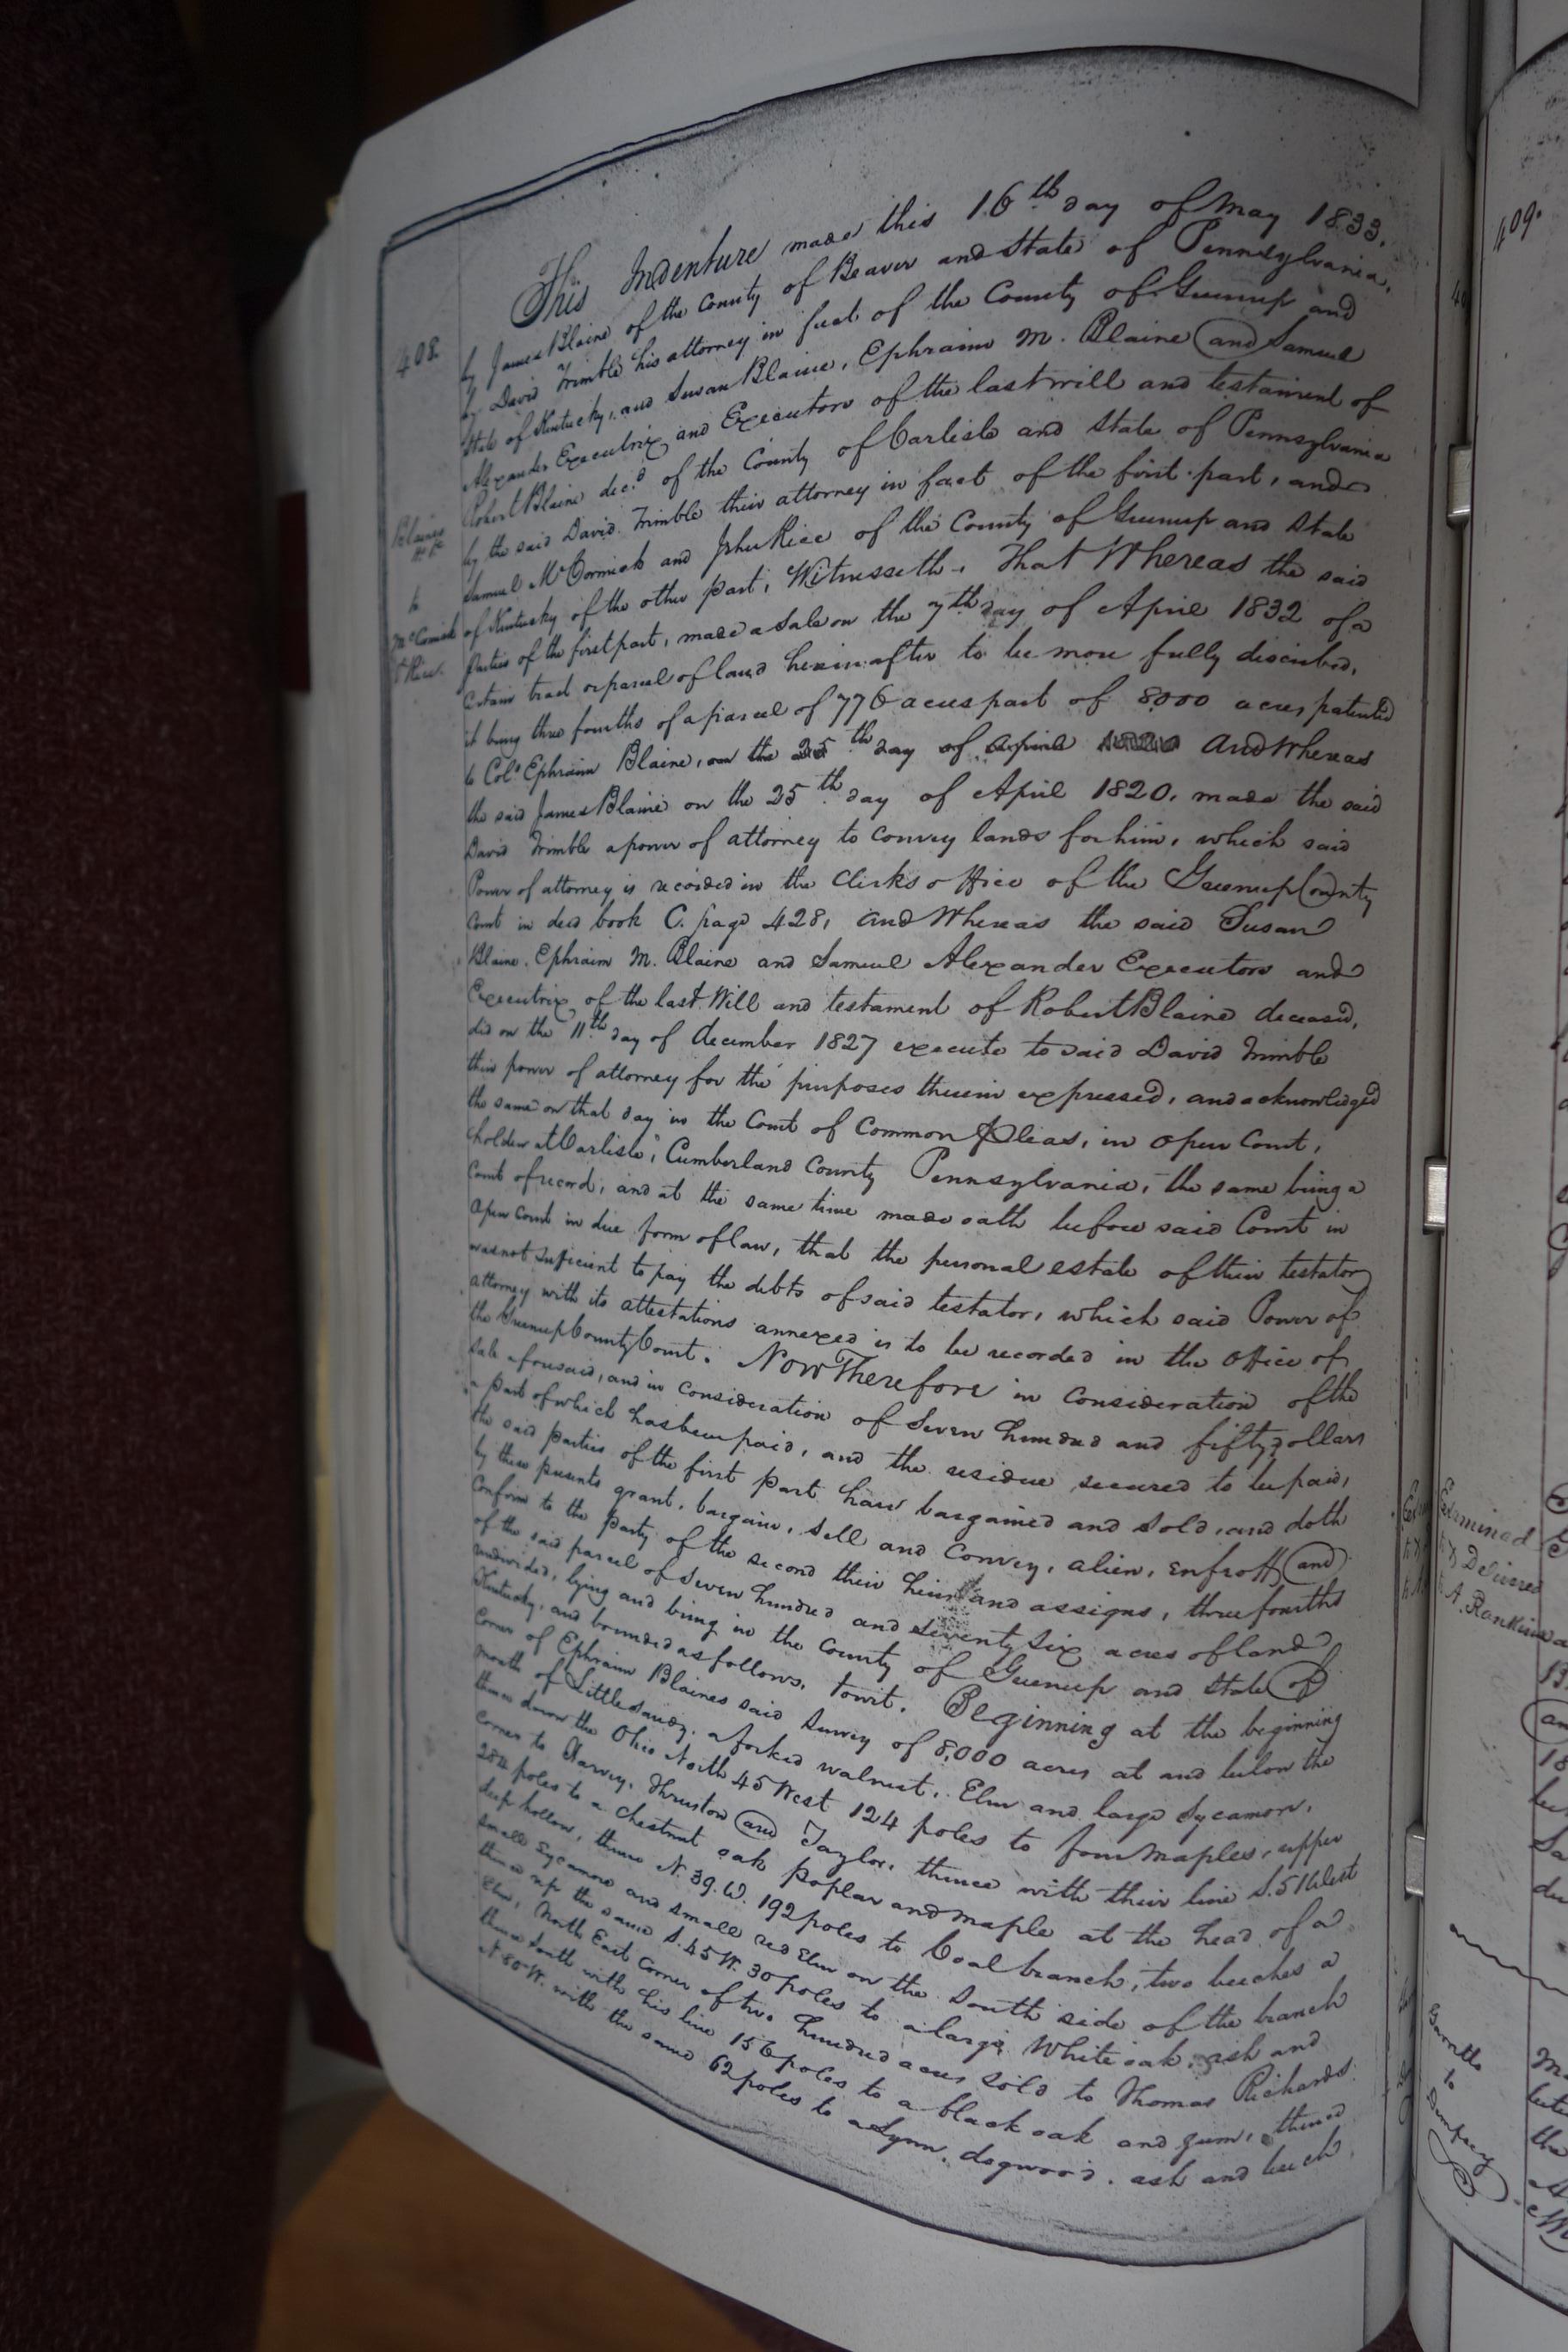 408.
Blaines
to
McCormick
& Rice.
This Indenture made this 16th day of May 1833.
by James Blaine of the County of Beaver and State of Pennsylvania,
by David Trimble his attorney in fact of the County of Greenup and
State of Kentucky, and Susan Blaine, Ephraim M. Blaine and Samuel
Alexander Executrix and Executors of the last will and testament of
Robert Blaine decd of the County of Carlisle and State of Pennsylvania
by the said David Trimble their attorney in fact of the first part, and
Samuel McCormick and John Rice of the County of Greenup and State
of Kentucky of the other part, Witnesseth, That Whereas the said
parties of the first part, made a sale on the 7th day of April 1832 of a
Certain tract or parcel of land hereinafter to be more fully discribed,
it being three fourths of a parcel of 776 acres part of 8000 acres patented
to Colo Ephraim Blaine, on the 25th day of April 1820 And Whereas
the said James Blaine on the 25th day of April 1820, made the said
David Trimble a power of attorney to convey lands for him, which said
Power of attorney is recorded in the Clerks office of the Greenup County
Court in deed book C. page 428, and Whereas the said Susan
Blaine, Ephraim M. Blaine and Samuel Alexander Executors and
Executrix of the last Will and testament of Robert Blaine deceased,
did on the 11th day of december 1827 execute to said David Trimble
their power of attorney for the purposes therein expressed, and acknowledged
the same on that day in the Court of Common Pleas, in open Court,
holden at Carlisle, Cumberland County Pennsylvania, the same being a
Court of record, and at the same time made oath before said Court in
open Court in due form of law, that the personal estate of their testator
was not suficient to pay the debts of said testator, which said Power of
attorney with its attestations annexed is to be recorded in the office of
the Greenup County Court. Now Therefore in consideration of the
sale aforesaid, and in consideration of Seven hundred and fifty dollars
a part of which has been paid, and the residue secured to be paid,
the said parties of the first part have bargained and sold, and doth
by these presents grant, bargain, sell and convey, alien, enfeoff and
Confirm to the party of the second their heirs and assigns, three fourths
of the said parcel of seven hundred and seventy six acres of land
undivided, lying and being in the County of Greenup and State of
Kentucky, and bounded as follows, towit. Beginning at the beginning
Corner of Ephraim Blaines said Survey of 8,000 acres at and below the
mouth of Little Sandy, a forked walnut, Elm and large Sycamore,
thence down the Ohio North 45 West 124 poles to four maples, upper
corner to Harvey, Thruston and Taylor, thence with their line S. 51 West
284 poles to a chestnut oak poplar and maple at the head of a
deep hollow, thence N. 39. W. 192 poles to Coal branch, two beeches a
small Sycamore and small red Elm on the South side of the branch
thence up the same S. 45 W. 30 poles to a large White oak, ash and
Elm, North East Corner of two hundred acres sold to Thomas Richards
thence South with his line 156 poles to a black oak and gum, thence
N 80 W. with the same 62 poles to a Lynn, dogwood, ash and beech
409.
Examined
& Delivered
A. Rankins
to
Dempsey